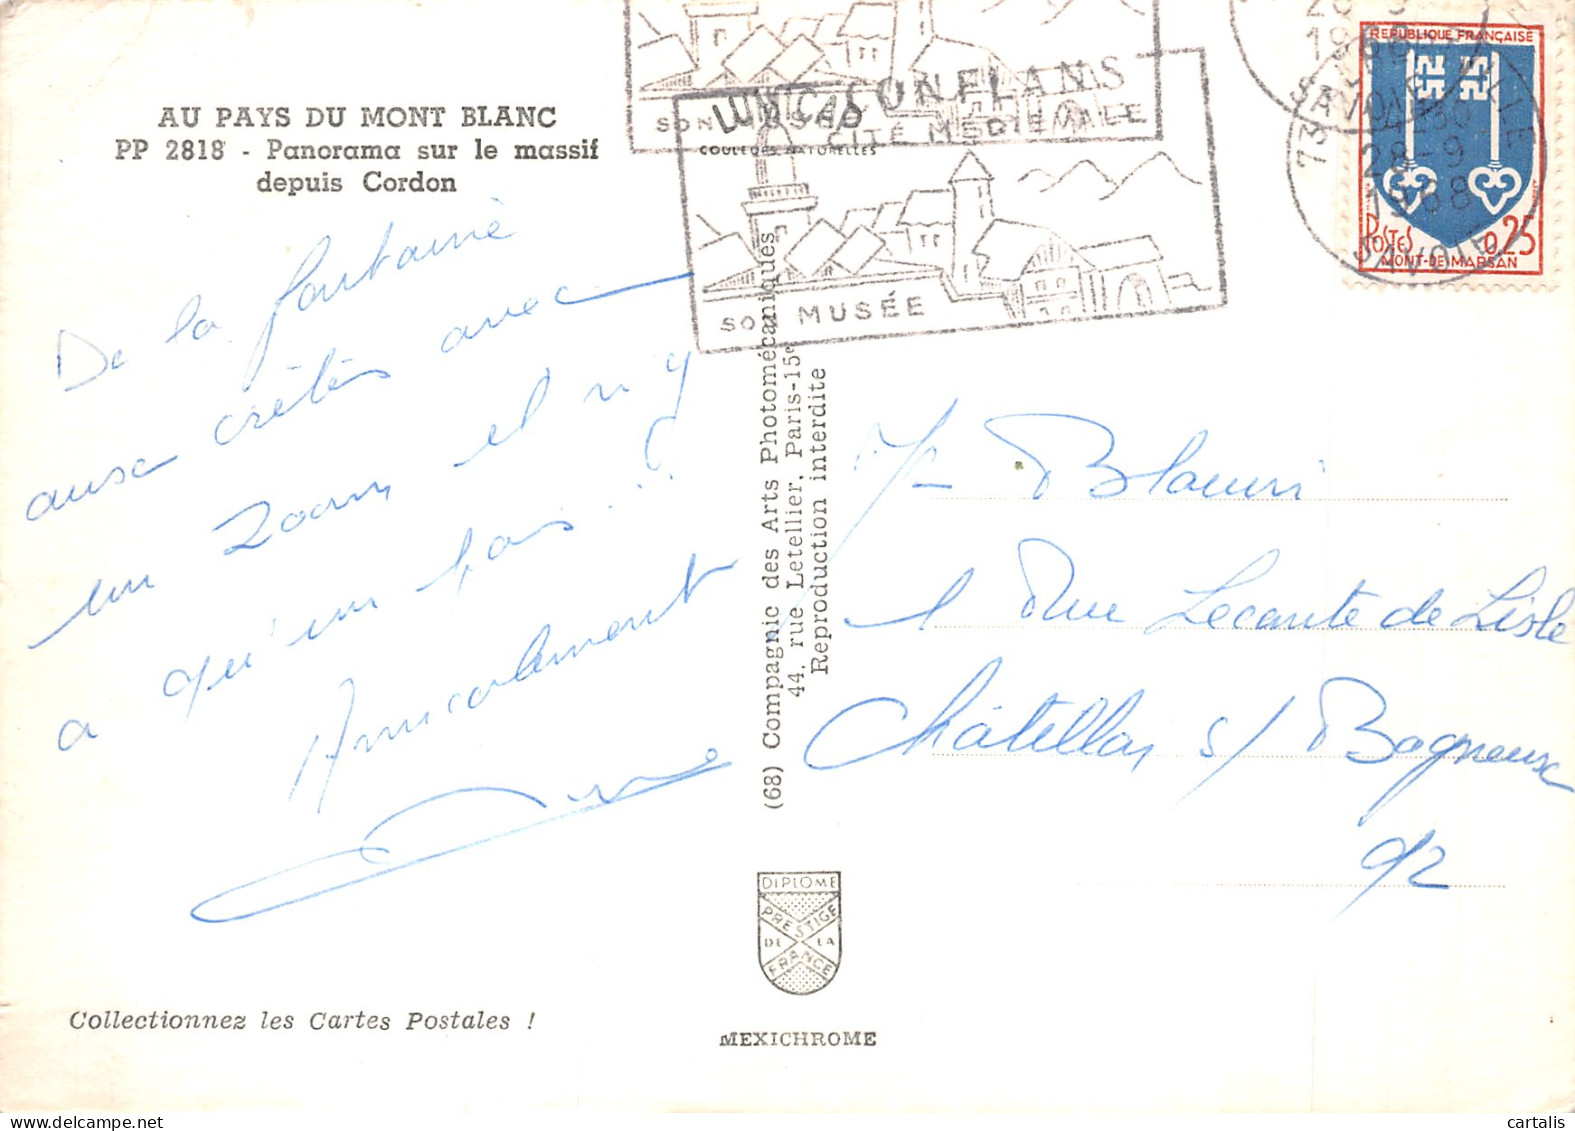 AU PAYS DU MONT BLANC
PP 2818 - Panorama sur le massif
depuis Cordon
De la fontaine
aux crêtes avec
un zoom et n y
a qu'un pas...
Amicalement
Collectionnez les Cartes Postales !
LUMICAP
COULEURS NATURELLES
(68) Compagnie des Arts Photomécaniques
44, rue Letellier, Paris-15e
Reproduction interdite
DIPLOME
PRESTIGE
DE LA
FRANCE
MEXICHROME
CONFLANS
CITÉ MÉDIÉVALE
SON MUSÉE
SON MUSÉE
28-9
1968
SAVOIE
73
28-9
1968
SAVOIE
REPUBLIQUE FRANÇAISE
POSTES 0,25
MONT-DE-MARSAN
1 Rue Leconte de Lisle
Châtillon s/ Bagneux
92
cartalis
www.delcampe.net